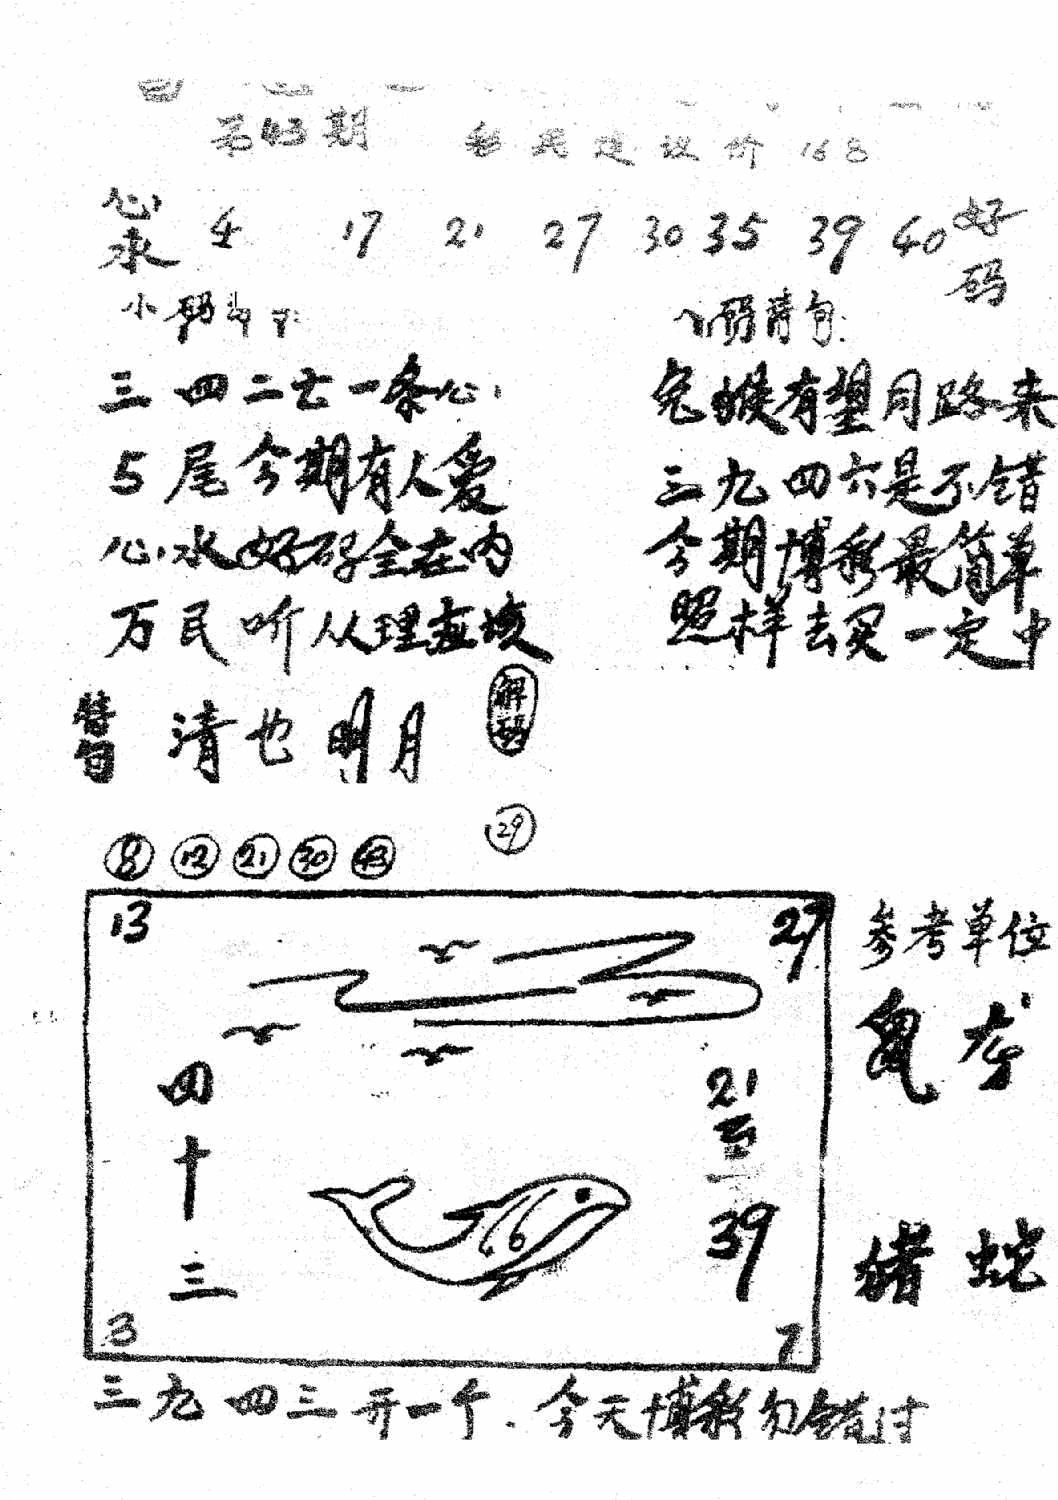 第43期 彩民建议价168
心水 4 17 21 27 30 35 39 40 好码
小码
码诗句:
三四二七一条心
兔猴有望月路来
5尾今期有人爱
三九四六是不错
心水好码全在内
今期博彩最简单
万民听从理应该
照样去买一定中
特句 清也明月 解码
8 12 21 30 43 29
13 27
参考单位
鼠 龙
四十三
21
三一
39
16
猪 蛇
3 7
三九四三开一个.今天博彩勿错过